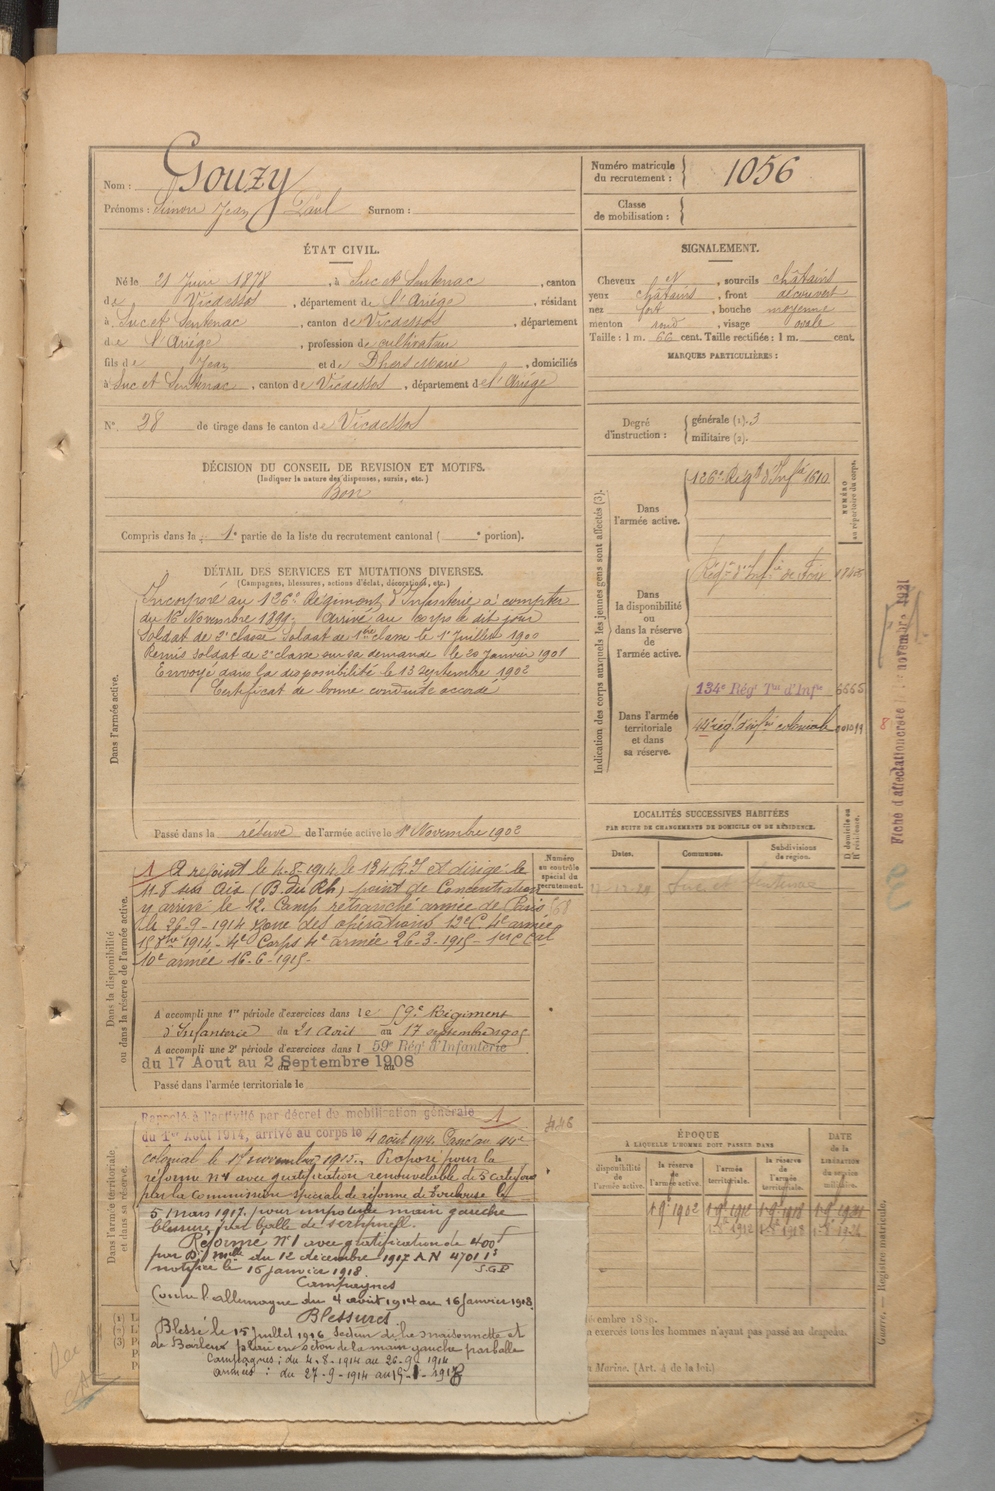 Nom : Gouzy
Prénoms : Simon Jean Paul Surnom :
Numéro matricule
du recrutement : 1056
Classe
de mobilisation :
ÉTAT CIVIL.
Né le 21 Juin 1878, à Suc et Sentenac, canton
de Vicdessos, département de l'Ariège, résidant
à Suc et Sentenac, canton de Vicdessos, département
de l'Ariège, profession de cultivateur
fils de Jean et de Dhers Marie, domiciliés
à Suc et Sentenac, canton de Vicdessos, département de l'Ariège
N° 28 de tirage dans le canton de Vicdessos
SIGNALEMENT.
Cheveux N, sourcils châtains
yeux châtains, front découvert
nez fort, bouche moyenne
menton rond, visage ovale
Taille : 1 m. 66 cent. Taille rectifiée : 1 m. cent.
MARQUES PARTICULIÈRES :
Degré
d'instruction :
générale (1). 3
militaire (2).
DÉCISION DU CONSEIL DE REVISION ET MOTIFS.
(Indiquer la nature des dispenses, sursis, etc.)
Bon
Compris dans la 1e partie de la liste du recrutement cantonal ( e portion).
DÉTAIL DES SERVICES ET MUTATIONS DIVERSES.
(Campagnes, blessures, actions d'éclat, décorations, etc.)
Dans l'armée active.
Incorporé au 126e Régiment d'Infanterie à compter
du 16 Novembre 1899. Arrivé au corps le dit jour
Soldat de 2e classe Soldat de 1ère classe le 1er Juillet 1900
Remis soldat de 2e classe sur sa demande le 20 Janvier 1901
Envoyé dans la disponibilité le 13 Septembre 1902
Certificat de bonne conduite accordé
Passé dans la réserve de l'armée active le 1er Novembre 1902
Indication des corps auxquels les jeunes gens sont affectés (3).
NUMÉRO
au répertoire du corps.
Dans
l'armée active.
126e Régt d'Infie 1610
Dans
la disponibilité
ou
dans la réserve
de
l'armée active.
Régt d'Infie de Foix
Dans l'armée
territoriale
et dans
sa réserve.
134e Régt Tal d'Infie 6665
44 régt d'infie coloniale
Fiche d'affectation créée 1er novembre 1921
LOCALITÉS SUCCESSIVES HABITÉES
PAR SUITE DE CHANGEMENTS DE DOMICILE OU DE RÉSIDENCE.
Dates. Communes. Subdivisions
de région.
D domicile ou
R résidence.
Suc et Sentenac
Dans la disponibilité
ou dans la réserve de l'armée active.
Numéro
au contrôle
spécial du
recrutement.
1 A rejoint le 4-8-1914 le 134 R.I et dirigé le
11-8 sur Aix (B. du Rh.) point de Concentration
y arrivé le 12. Camp retranché armée de Paris
le 26-9-1914 zone des opérations 12e C. 4e armée
15 8bre 1914 - 4e Corps 4e armée 26-3-1915 - 1er C Cal
10e armée 16-6-1915-
A accompli une 1re période d'exercices dans le 59e Régiment
d'Infanterie du 21 Août au 17 septembre 1905
A accompli une 2e période d'exercices dans l 59e Régt d'Infanterie
du 17 Aout au 2 Septembre 1908
Passé dans l'armée territoriale le
Dans l'armée territoriale
et dans sa réserve.
Rappelé à l'activité par décret de mobilisation générale 1
du 1er Août 1914, arrivé au corps le 4 août 1914. Passé au 44e
colonial le 1er novembre 1915. Proposé pour la
réforme n°1 avec gratification renouvelable de 5 catégorie
par la Commission spéciale de réforme de Toulouse le
5 mars 1917. pour impotence main gauche
blessure par balle de schrapnell.
Réformé N°1 avec gratification de 400f
par Don Mlle du 12 décembre 1917 AN 4701 13
notifiée le 16 janvier 1918. S.G.P
Campagnes
Contre l'allemagne du 4 août 1914 au 16 Janvier 1918.
Blessures
Blessé le 15 Juillet 1916 Secteur de la maisonnette et
de Barleux plaie en séton de la main gauche par balle
Campagnes : du 4-8-1914 au 26-9-1914
armées : du 27-9-1914 au 15-1-1918
ÉPOQUE
À LAQUELLE L'HOMME DOIT PASSER DANS
la
disponibilité
de
l'armée active.
la réserve
de
l'armée active.
l'armée
territoriale.
la réserve
de
l'armée
territoriale.
DATE
de la
LIBÉRATION
du service
militaire.
embre 1859.
a exercé tous les hommes n'ayant pas passé au drapeau.
n Marine. (Art. 4 de la loi.)
Guerre. — Registre matricule.